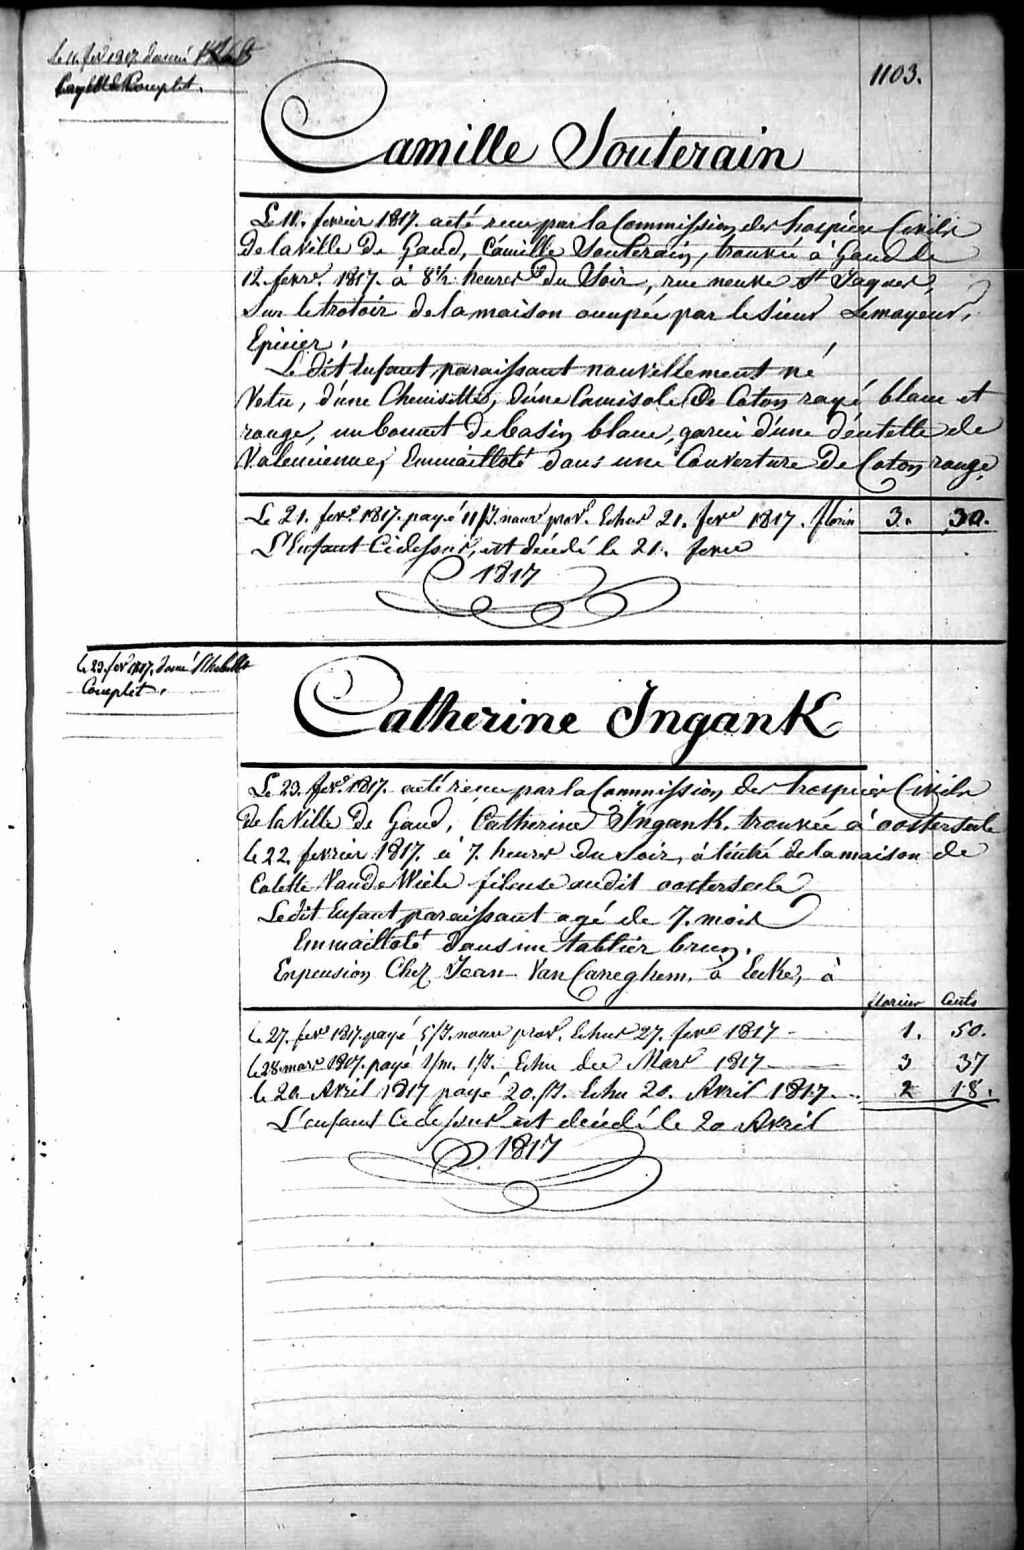 Le 11. fev 1817. donné
Complet.
1103.
Camille Souterain
Le 11. fevrier 1817. a eté recu par la Commission des hospices Civils
de la Ville de Gand, Camille Souterain, trouvée à Gand le
12. fevr. 1817. à 8½ heures du Soir, rue neuve St Jaques,
Sur le trotoir de la maison occupée par le Sieur Lemayeur,
Epicier.
Le dit Enfant, paraissant nouvellement né
Vetu, d'une Chemisette, d'une Camisole de Coton rayé blanc et
rouge, un bonnet de basin blanc, garni d'une dentelle de
Valencienne, Emmailloté dans une Couverture de Coton rouge.
Le 21. fevr. 1817. payé 11/J. nourr prov. Echus 21. fevr 1817. florin 3. 30.
L'Enfant Cidessus, est décédé le 21. fevrr
1817
le 23. fev 1817. donné
Complet.
Catherine Ingank
Le 23. fevr. 1817. a eté recu par la Commission des hospices Civils
de la Ville de Gand, Catherine Ingank. trouvée à oosterseele
le 22. fevrier 1817. à 7. heures du soir, à l'entré de la maison de
Colette Vande Wiele fileuse audit oosterseele
Le dit Enfant paraissant agé de 7. mois
Emmailloté dans un tablier brun.
En pension Chez Jean Van Caneghem. à Eecke, à
florins Cents
le 27. fevr 1817. payé 5/J. nourr prov. Echus 27. fevr 1817 - 1. 50.
le 28 mars 1817. payé 1/m. 1/J. Echu du Mars 1817 - 3 37
le 20. Avril 1817 payé 20. /J. Echu 20. Avril 1817. - 2 18.
L'enfant Cidessus est décédé le 20 Avril
1817